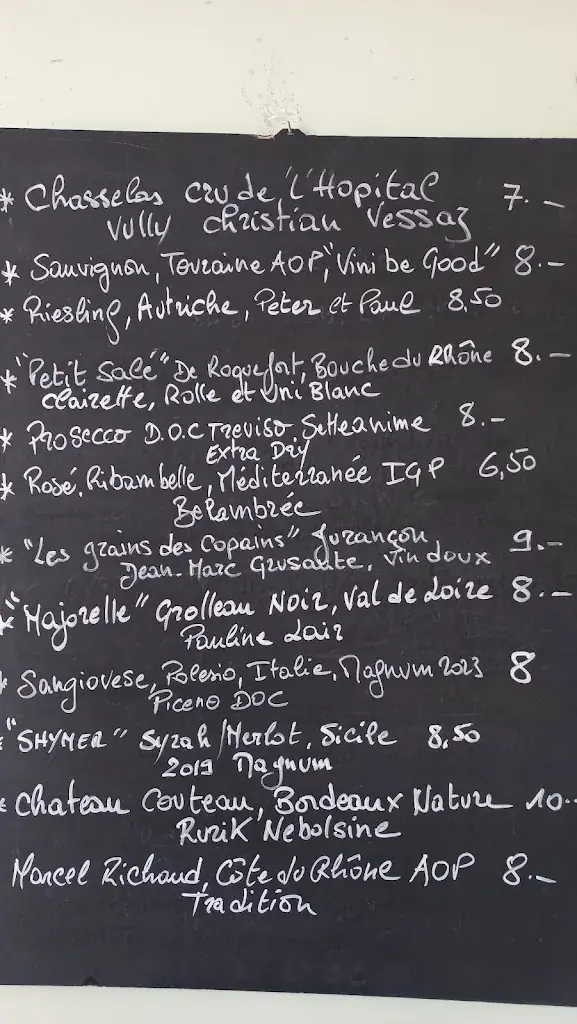 * Chasselas cru de l'Hopital 7.-
Vully Christian Vessaz
* Sauvignon, Touraine AOP, "Vini be Good" 8.-
* Riesling, Autriche, Peter et Paul 8,50
* "Petit Salé" De Roquefort, Bouche du Rhône 8.-
Clairette, Rolle et Uni Blanc
* Prosecco D.O.C Treviso, Setteanime 8.-
Extra Dry
* Rosé, Ribambelle, Méditerranée IGP 6,50
Belambrée
* "Les grains des Copains" Jurançon 9.-
Jean-Marc Grussaute, Vin doux
* "Majorelle" Grolleau Noir, Val de Loire 8.-
Pauline Lair
* Sangiovese, Polesio, Italie, Magnum 2023 8
Piceno DOC
* "SHYMER" Syrah/Merlot, Sicile 8,50
2019 Magnum
* Chateau Couteau, Bordeaux Nature 10.-
Rurik Nebolsine
Marcel Richaud, Côte du Rhône AOP 8.-
Tradition